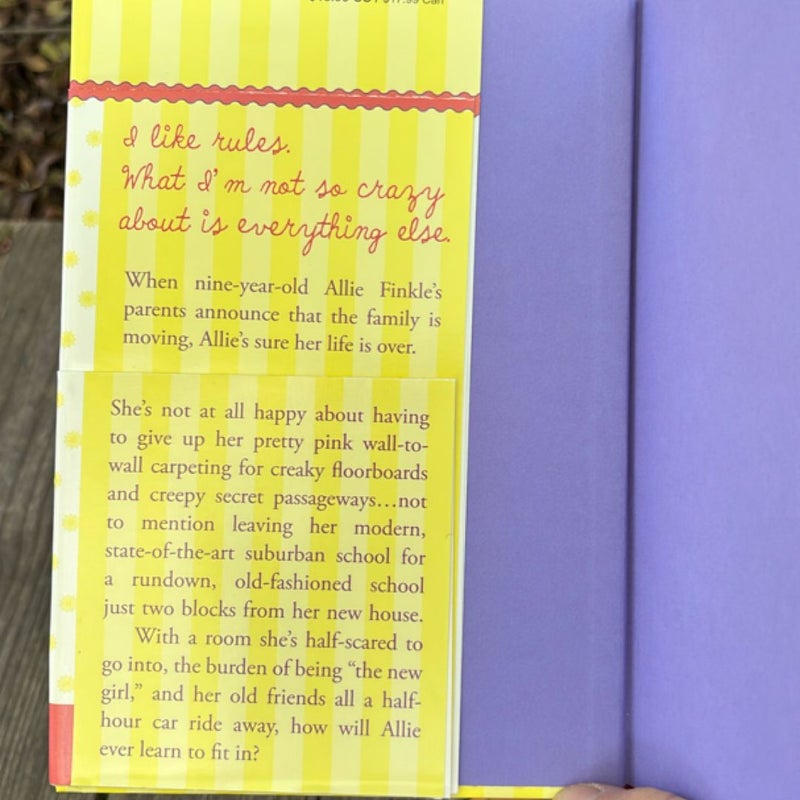 I like rules.
What I'm not so crazy
about is everything else.
When nine-year-old Allie Finkle's
parents announce that the family is
moving, Allie's sure her life is over.
She's not at all happy about having
to give up her pretty pink wall-to-
wall carpeting for creaky floorboards
and creepy secret passageways...not
to mention leaving her modern,
state-of-the-art suburban school for
a rundown, old-fashioned school
just two blocks from her new house.
With a room she's half-scared to
go into, the burden of being “the new
girl,” and her old friends all a half-
hour car ride away, how will Allie
ever learn to fit in?